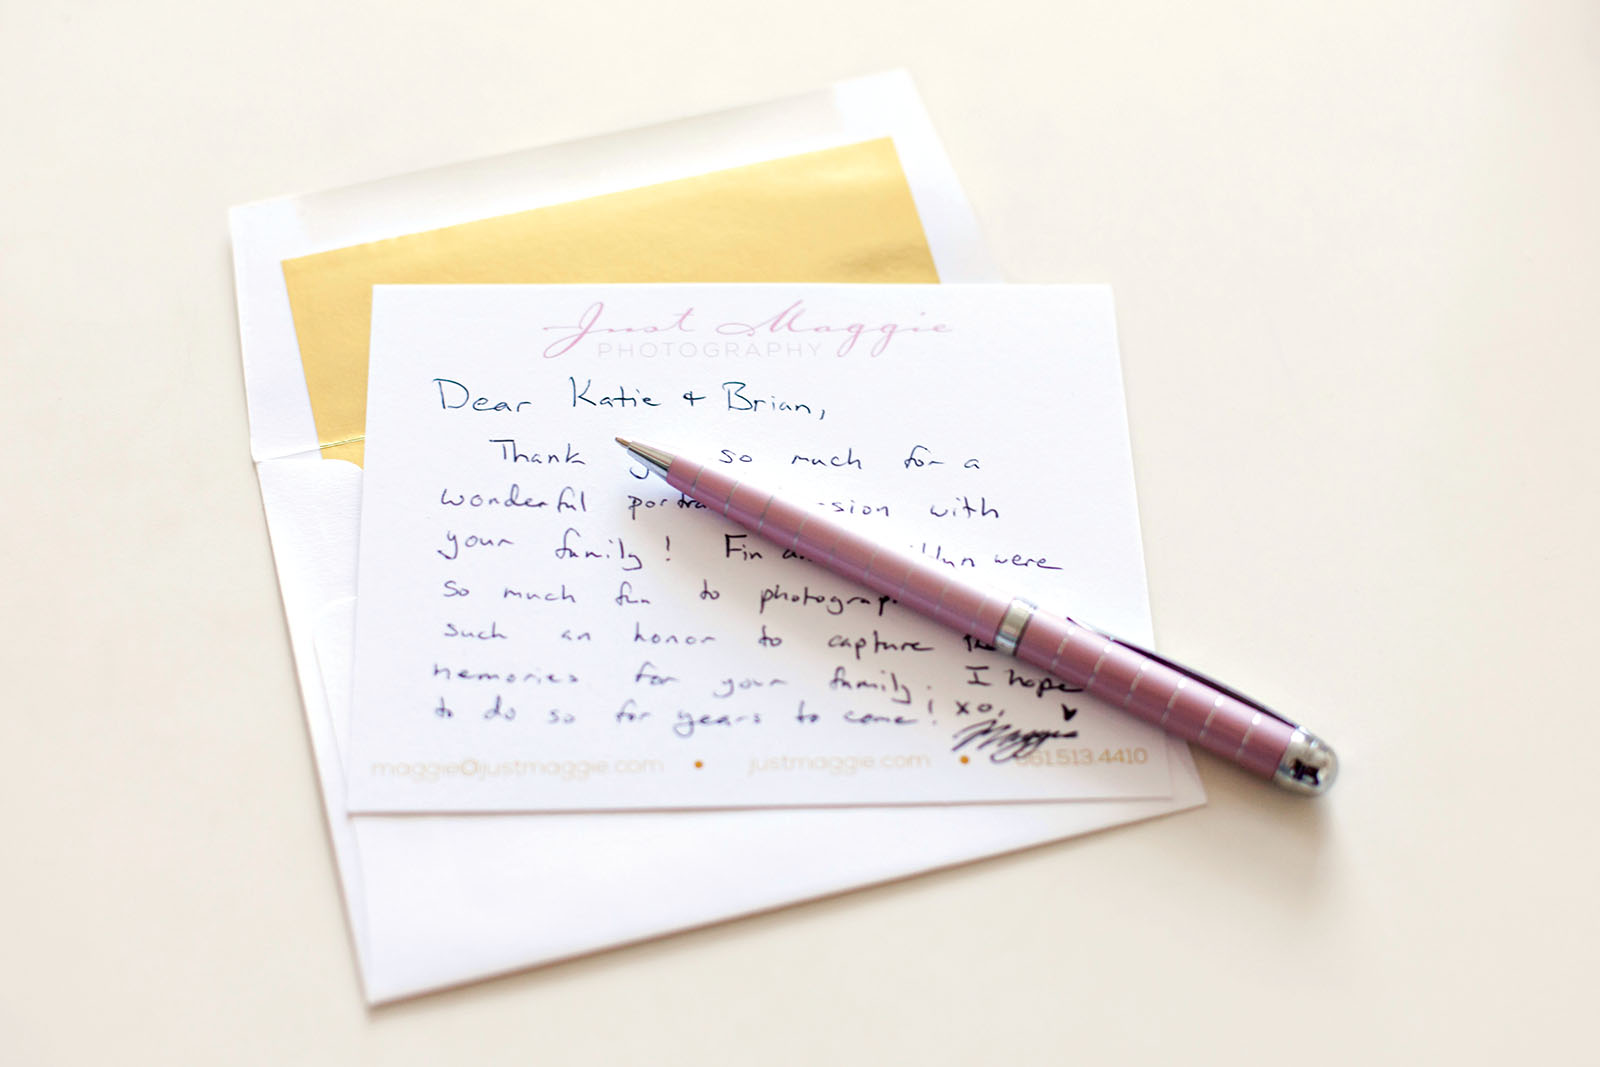 Just Maggie
PHOTOGRAPHY
Dear Katie & Brian,
Thank so much for a
wonderful with
your family! Fin were
so much fun to
such an honor to capture
memories for your family. I hope
to do so for years to come! xo,
Maggie
maggie@justmaggie.com • justmaggie.com • 661.513.4410